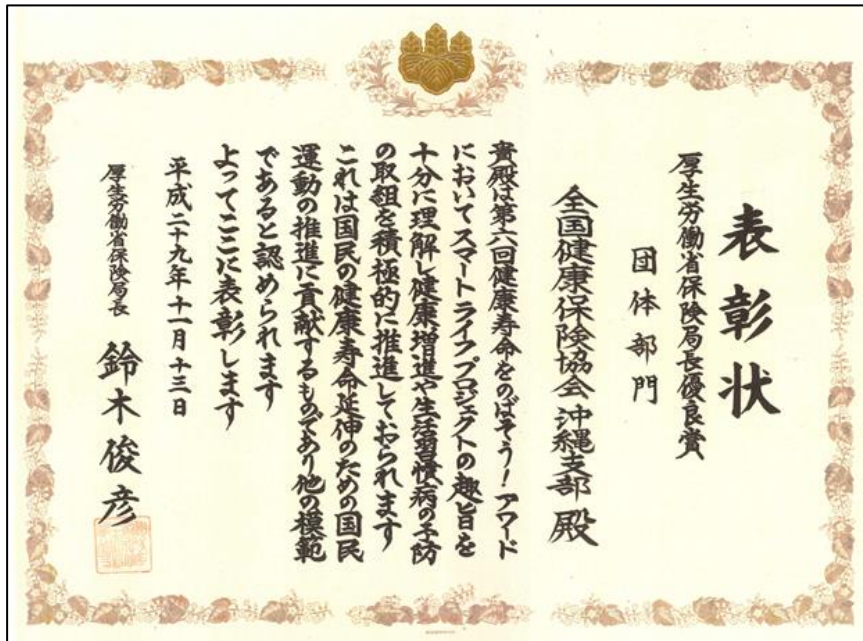 表彰状
厚生労働省保険局長優良賞
団体部門
全国健康保険協会 沖縄支部 殿
貴殿は第六回健康寿命をのばそう！アワード
においてスマートライフプロジェクトの趣旨を
十分に理解し健康増進や生活習慣病の予防
の取組を積極的に推進しておられます
これは国民の健康寿命延伸のための国民
運動の推進に貢献するものであり他の模範
であると認められます
よってここに表彰します
平成二十九年十一月十三日
厚生労働省保険局長 鈴木俊彦